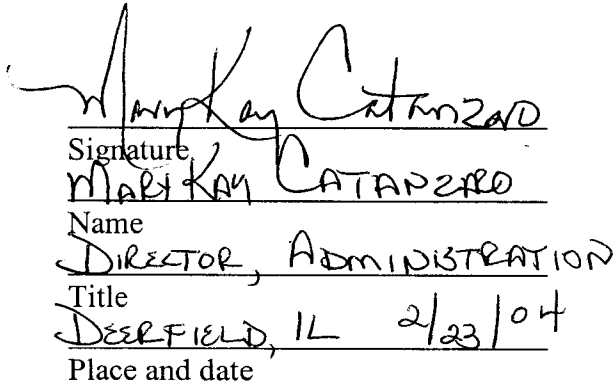 Mary Kay Catanzaro
Signature
MARY KAY CATANZARO
Name
DIRECTOR, ADMINISTRATION
Title
DEERFIELD, IL 2/23/04
Place and date